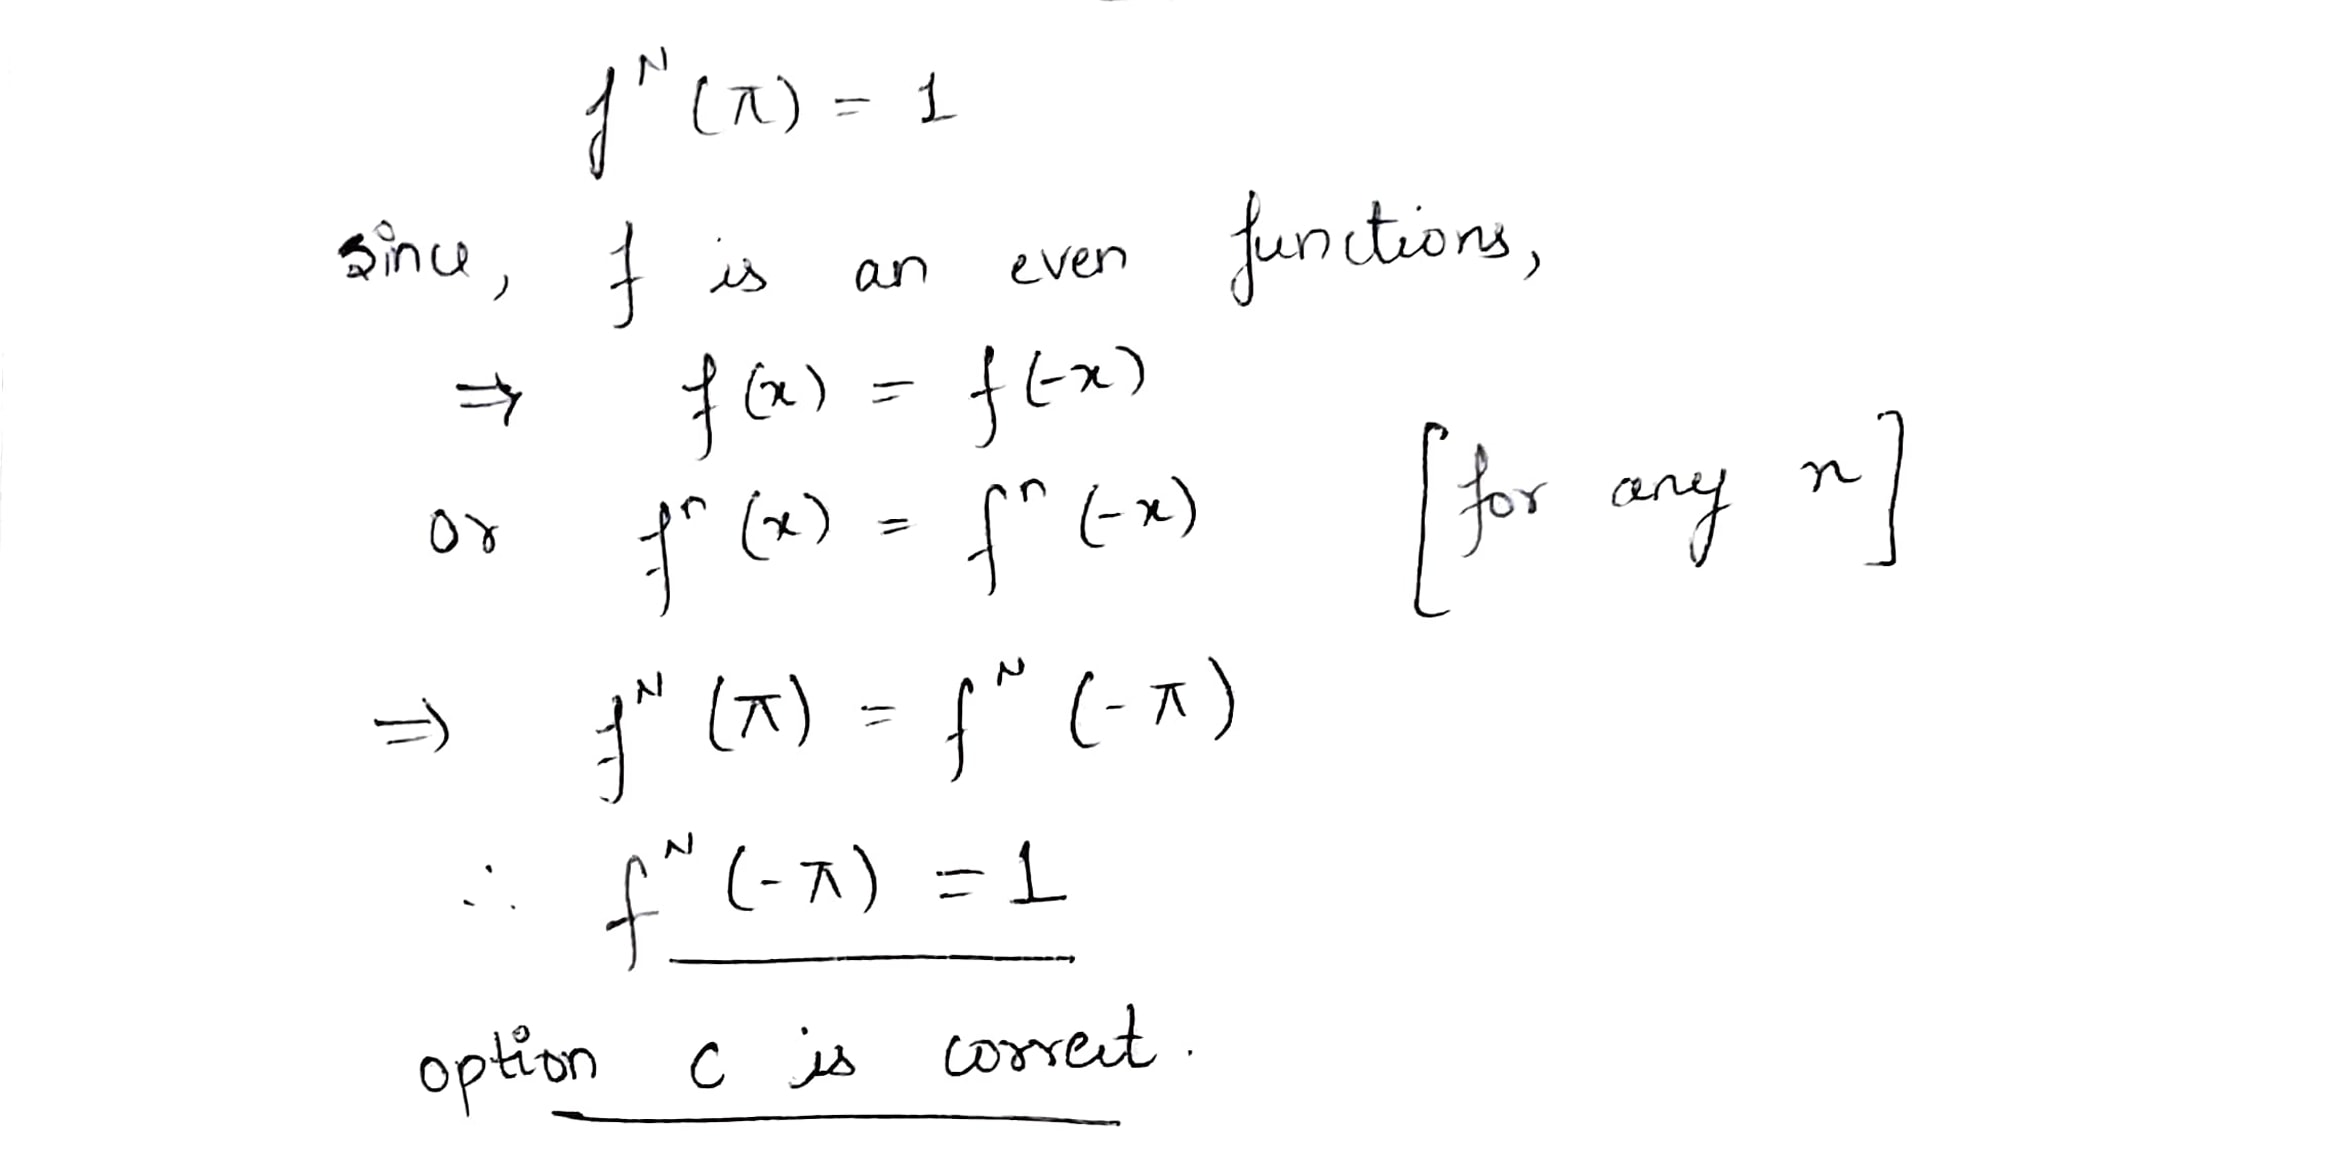 f^N (π) = 1
since, f is an even functions,
⇒ f(x) = f(-x)
or f^n (x) = f^n (-x) [for any n]
⇒ f^N (π) = f^N (-π)
∴ f^N (-π) = 1
option c is correct.